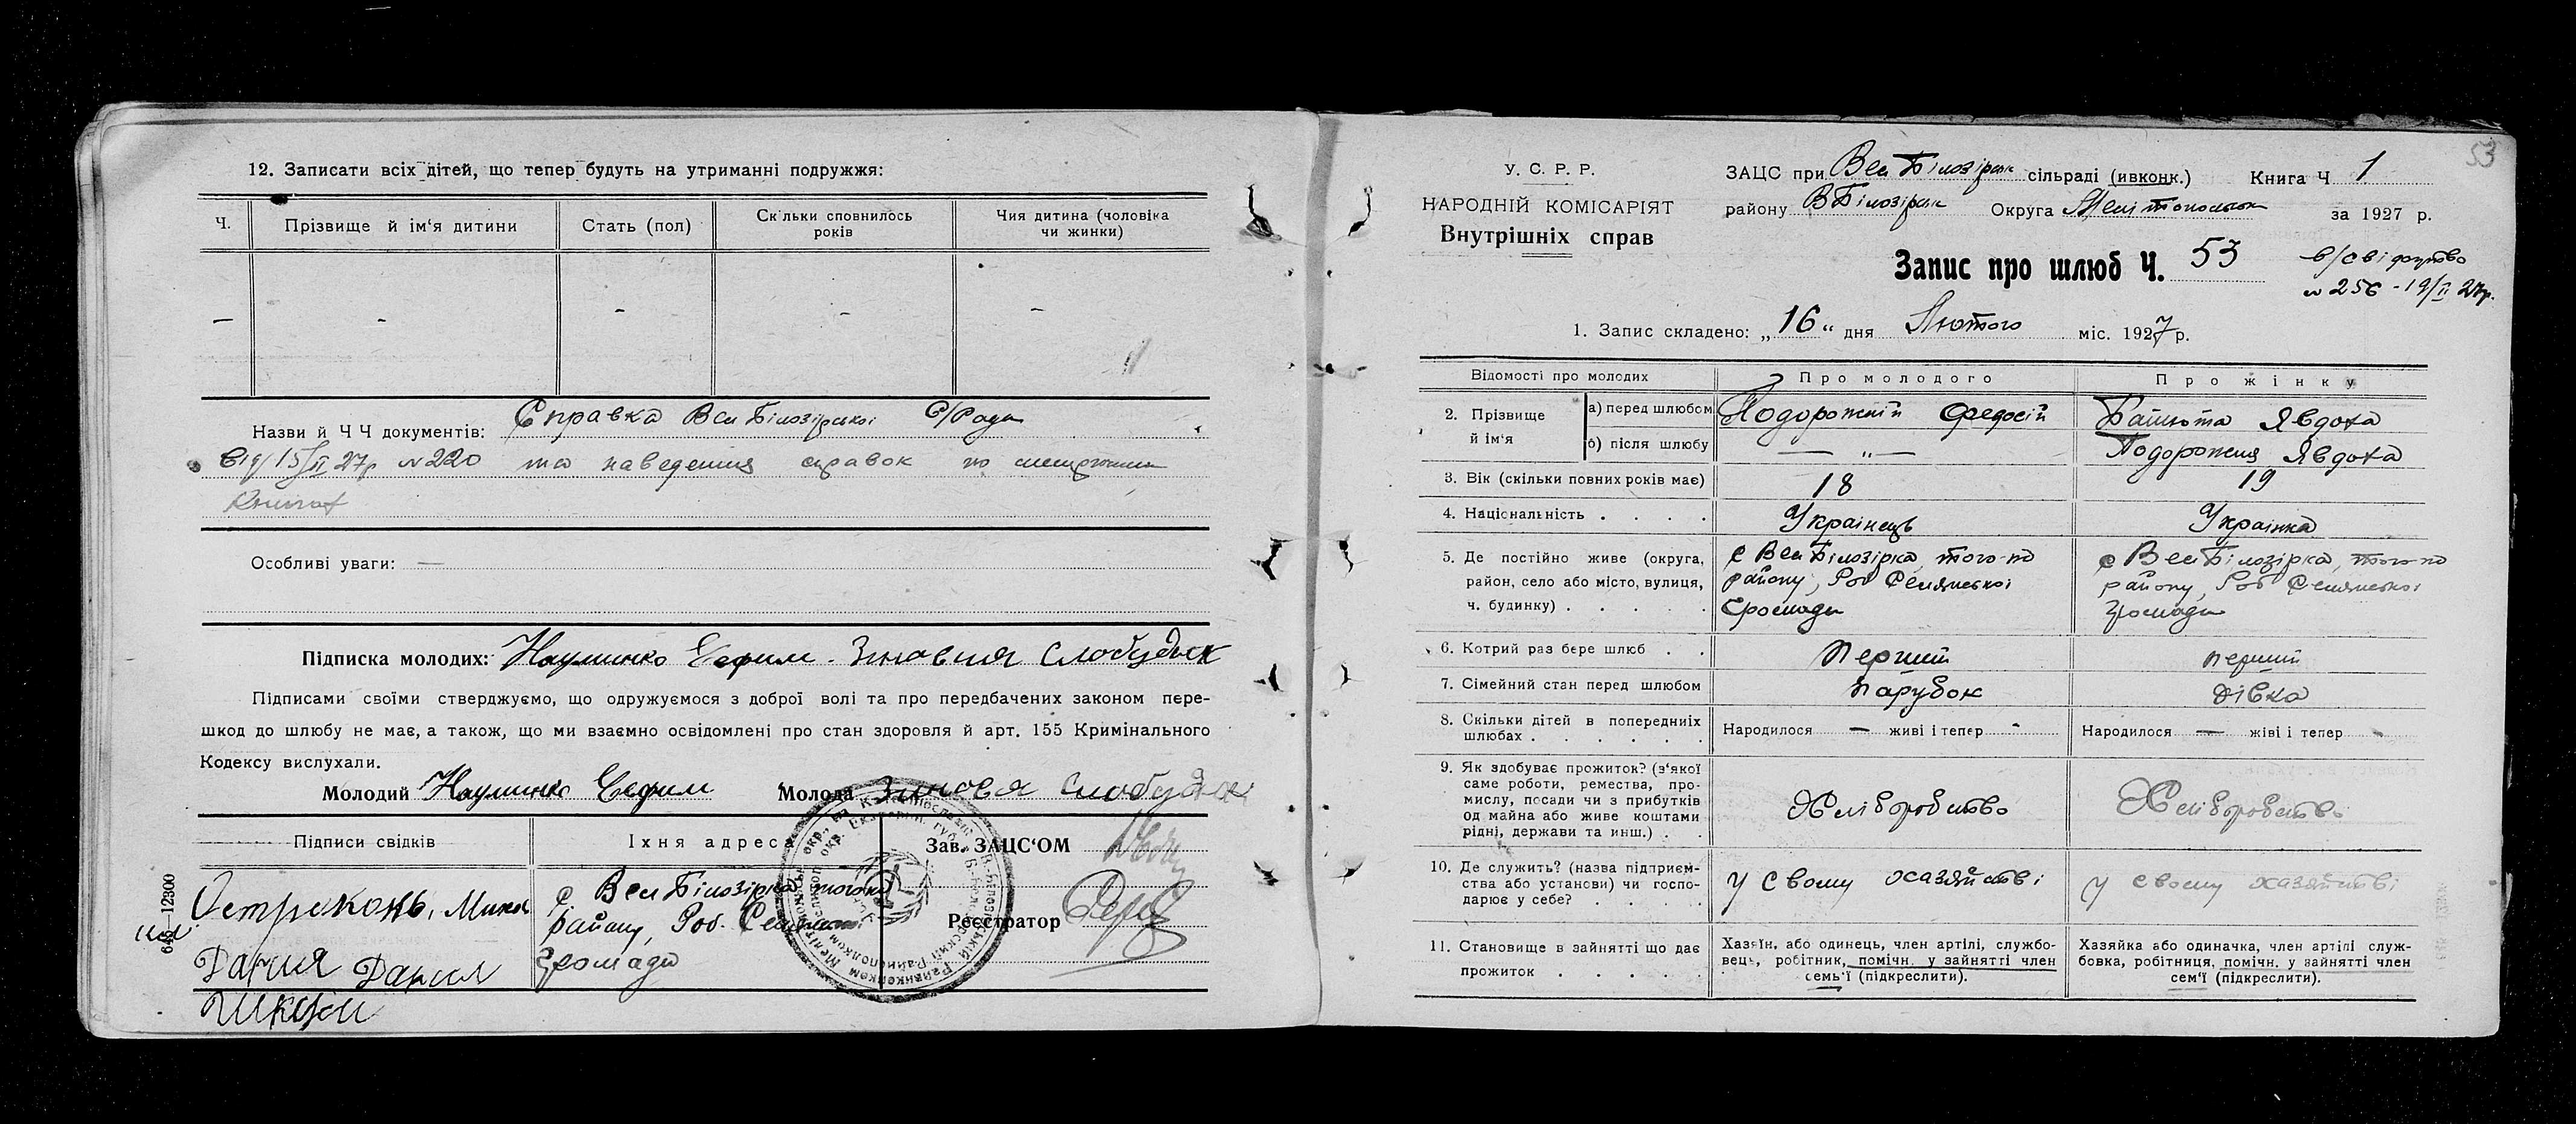 12. Записати всіх дітей, що тепер будуть на утриманні подружжя:
Ч. Прізвище й ім'я дитини Стать (пол) Скільки сповнилось років Чия дитина (чоловіка чи жинки)
— - - - —
Назви й Ч Ч документів: Справка Вел Білозірської С/Ради
від 15/II 27р №220 та наведения справок по
книгах
Особливі уваги: —
Підписка молодих: Науминко Єефим. Зиновия Слободеск
Підписами своїми стверджуємо, що одружуємося з доброї волі та про передбачених законом пере-
шкод до шлюбу не має, а також, що ми взаємно освідомлені про стан здоровля й арт. 155 Кримінального
Кодексу вислухали.
Молодий Науминко Єефим Молода Зиновя
Підписи свідків Їхня адреса Зав. ЗАЦС'ОМ
с Вел Білозірка того-по
району, Роб. Селянської
громади
Реєстратор
Дария
645—12300
53
У. С. Р. Р.
НАРОДНІЙ КОМІСАРІЯТ
Внутрішніх справ
ЗАЦС при Вел Білозірск сільраді (ивконк.) Книга Ч 1
району ВБілозірск Округа Мелітопольск за 1927 р.
Запис про шлюб Ч. 53
в/свідоцтво
№ 256 - 19/II 27р.
1. Запис складено: „16" дня Лютого міс. 1927 р.
Відомості про молодих Про молодого Про жінку
2. Прізвище й ім'я а) перед шлюбом Подорожній Федосій Башота Явдоха
б) після шлюбу — „ — Подорожня Явдоха
3. Вік (скільки повних років має) 18 19
4. Національність . . . . Українець Українка
5. Де постійно живе (округа, район, село або місто, вулиця, ч. будинку) . . . . .
с Вел Білозірка, того-по
району, Роб Селянської
громади
с Вел Білозірка, того-по
району, Роб Селянської
громади
6. Котрий раз бере шлюб . . Перший перший
7. Сімейний стан перед шлюбом парубок дівка
8. Скільки дітей в попередниіх шлюбах . . . . . . Народилося — живі і тепер - Народилося — жіві і тепер -
9. Як здобуває прожиток? (з'якої
саме роботи, ремества, про-
мислу, посади чи з прибутків
од майна або живе коштами
рідні, держави та инш.) . .
Хліборобство Хліборобство
10. Де служить? (назва підприєм-
ства або установи) чи госпо-
дарює у себе? . . . .
у свому хазяйстві у свому хазяйстві
11. Становище в зайнятті що дає
прожиток . . . . .
Хазяїн, або одинець, член артілі, службо-
вець, робітник, помічн. у зайнятті член
семь'ї (підкреслити).
Хазяйка або одиначка, член артілі служ-
бовка, робітниця, помічн. у вайнятті член
сем'ї (підкреслити).